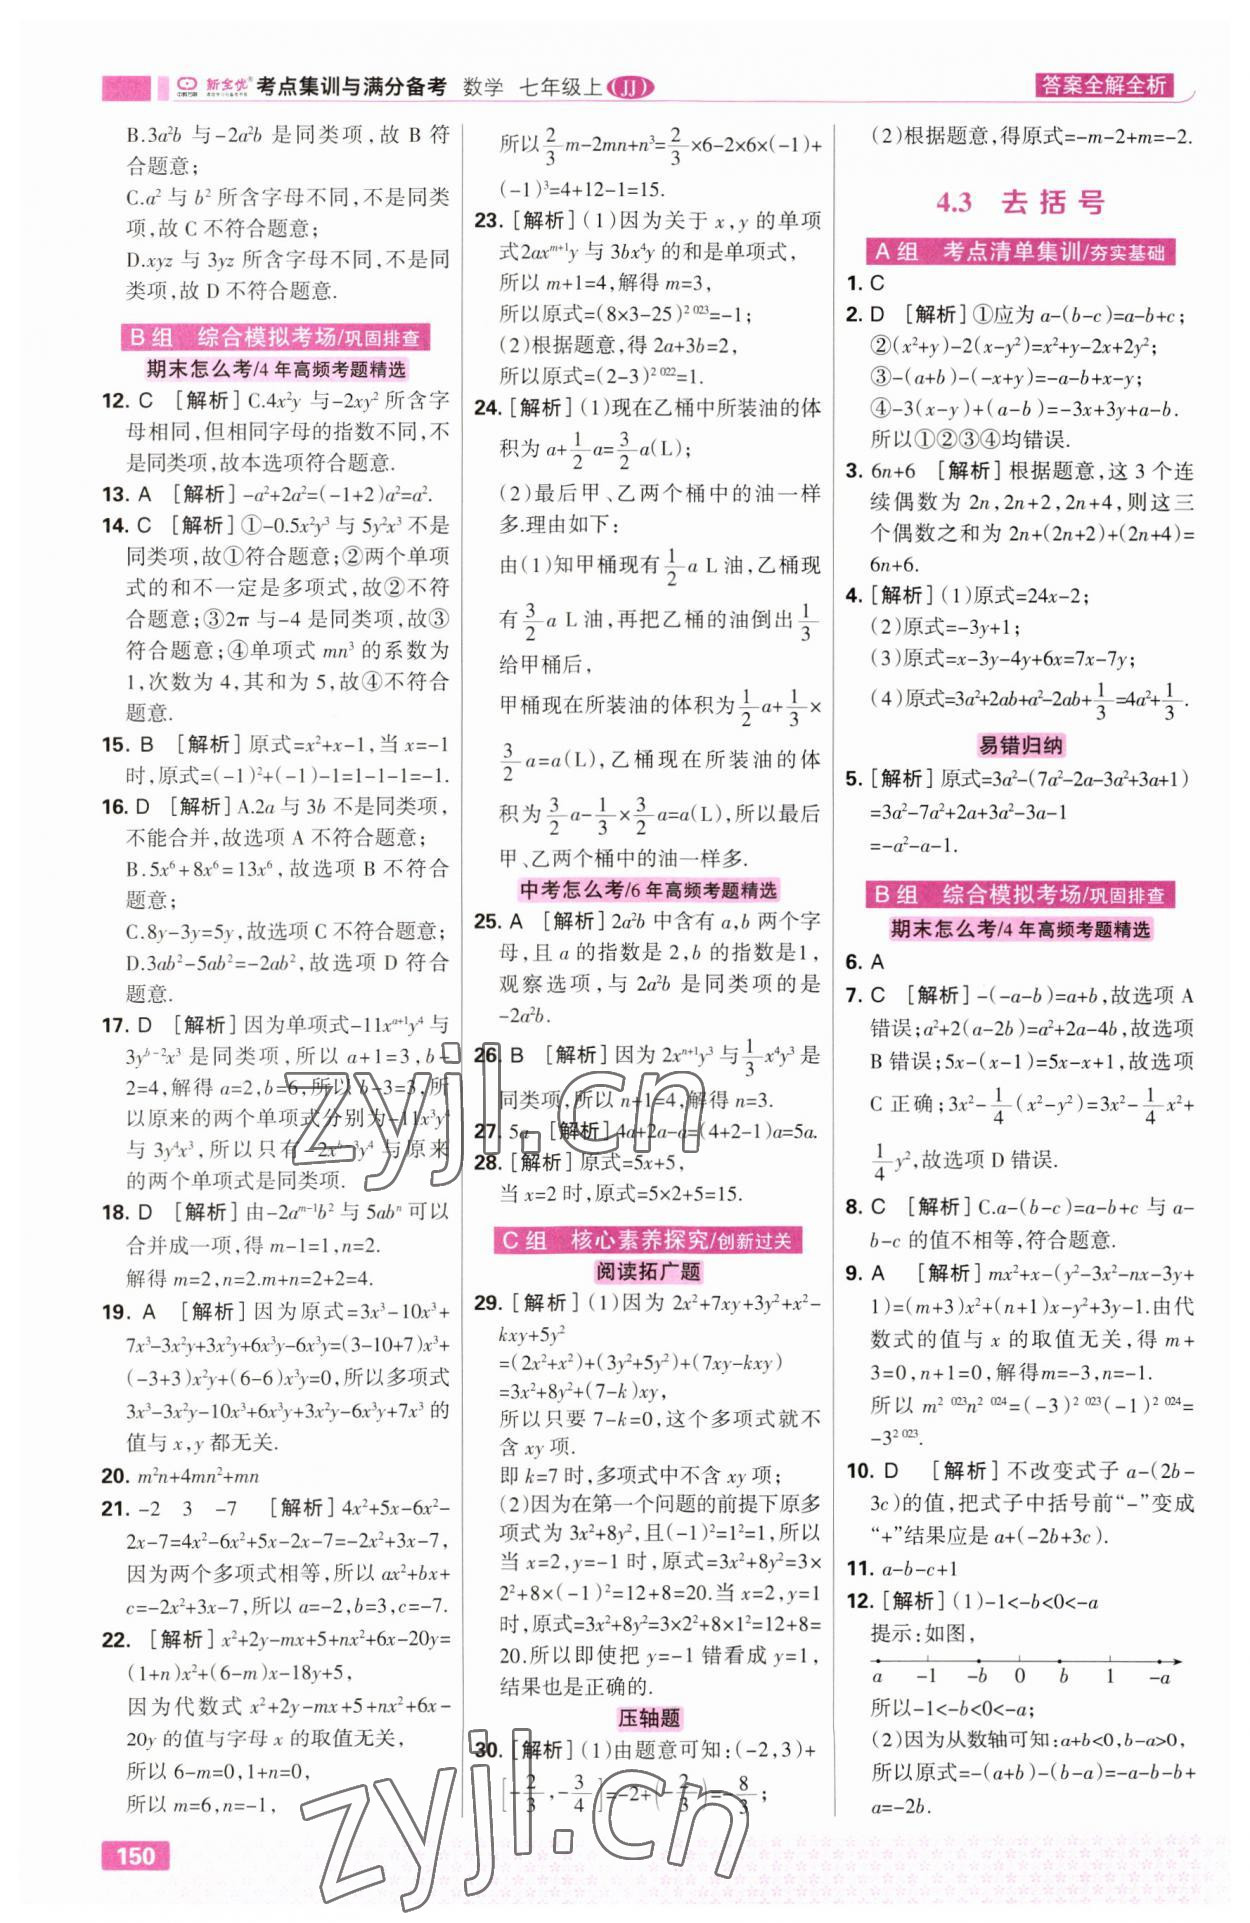 新全优 考点集训与满分备考 数学 七年级上 JJ
答案全解全析
B.3a²b 与-2a²b 是同类项,故 B 符
合题意;
C.a² 与 b² 所含字母不同,不是同类
项,故 C 不符合题意;
D.xyz 与 3yz 所含字母不同,不是同
类项,故 D 不符合题意.
B 组 综合模拟考场/巩固排查
期末怎么考/4 年高频考题精选
12. C [解析]C.4x²y 与-2xy² 所含字
母相同,但相同字母的指数不同,不
是同类项,故本选项符合题意.
13. A [解析]-a²+2a²=(-1+2)a²=a².
14. C [解析]①-0.5x²y³ 与 5y²x³ 不是
同类项,故①符合题意;②两个单项
式的和不一定是多项式,故②不符
合题意;③2π 与-4 是同类项,故③
符合题意;④单项式 mn³ 的系数为
1,次数为 4,其和为 5,故④不符合
题意.
15. B [解析]原式=x²+x-1,当 x=-1
时,原式=(-1)²+(-1)-1=1-1-1=-1.
16. D [解析]A.2a 与 3b 不是同类项,
不能合并,故选项 A 不符合题意;
B.5x⁶+8x⁶=13x⁶,故选项 B 不符合
题意;
C.8y-3y=5y,故选项 C 不符合题意;
D.3ab²-5ab²=-2ab²,故选项 D 符合
题意.
17. D [解析]因为单项式-11xᵃ⁺¹y⁴ 与
3yᵇ⁻²x³ 是同类项,所以 a+1=3,b-
2=4,解得 a=2,b=6,所以 b-3=3,所
以原来的两个单项式分别为-11x³y⁴
与 3y⁴x³,所以只有 -2xᵇ⁻³y⁴ 与原来
的两个单项式是同类项.
18. D [解析]由-2aᵐ⁻¹b² 与 5abⁿ 可以
合并成一项,得 m-1=1,n=2.
解得 m=2,n=2.m+n=2+2=4.
19. A [解析]因为原式=3x³-10x³+
7x³-3x²y+3x²y+6x³y-6x³y=(3-10+7)x³+
(-3+3)x²y+(6-6)x³y=0,所以多项式
3x³-3x²y-10x³+6x³y+3x²y-6x³y+7x³ 的
值与 x,y 都无关.
20. m²n+4mn²+mn
21. -2 3 -7 [解析]4x²+5x-6x²-
2x-7=4x²-6x²+5x-2x-7=-2x²+3x-7,
因为两个多项式相等,所以 ax²+bx+
c=-2x²+3x-7,所以 a=-2,b=3,c=-7.
22. [解析]x²+2y-mx+5+nx²+6x-20y=
(1+n)x²+(6-m)x-18y+5,
因为代数式 x²+2y-mx+5+nx²+6x-
20y 的值与字母 x 的取值无关,
所以 6-m=0,1+n=0,
所以 m=6,n=-1,
所以2/3m-2mn+n³=2/3×6-2×6×(-1)+
(-1)³=4+12-1=15.
23. [解析](1)因为关于 x,y 的单项
式2axᵐ⁺¹y 与 3bx⁴y 的和是单项式,
所以 m+1=4,解得 m=3,
所以原式=(8×3-25)² ⁰²³=-1;
(2)根据题意,得 2a+3b=2,
所以原式=(2-3)² ⁰²²=1.
24. [解析](1)现在乙桶中所装油的体
积为 a+1/2a=3/2a(L);
(2)最后甲、乙两个桶中的油一样
多.理由如下:
由(1)知甲桶现有1/2a L 油,乙桶现
有3/2a L 油,再把乙桶的油倒出1/3
给甲桶后,
甲桶现在所装油的体积为1/2a+1/3×
3/2a=a(L),乙桶现在所装油的体
积为3/2a-1/3×3/2a=a(L),所以最后
甲、乙两个桶中的油一样多.
中考怎么考/6 年高频考题精选
25. A [解析]2a²b 中含有 a,b 两个字
母,且 a 的指数是 2,b 的指数是1,
观察选项,与 2a²b 是同类项的是
-2a²b.
26. B [解析]因为 2xⁿ⁺¹y³ 与1/3x⁴y³ 是
同类项,所以 n+1=4,解得 n=3.
27. 5a [解析]4a+2a-a=(4+2-1)a=5a.
28. [解析]原式=5x+5,
当 x=2 时,原式=5×2+5=15.
C 组 核心素养探究/创新过关
阅读拓广题
29. [解析](1)因为 2x²+7xy+3y²+x²-
kxy+5y²
=(2x²+x²)+(3y²+5y²)+(7xy-kxy)
=3x²+8y²+(7-k)xy,
所以只要 7-k=0,这个多项式就不
含 xy 项.
即 k=7 时,多项式中不含 xy 项;
(2)因为在第一个问题的前提下原多
项式为 3x²+8y²,且(-1)²=1²=1,所以
当 x=2,y=-1 时,原式=3x²+8y²=3×
2²+8×(-1)²=12+8=20.当 x=2,y=1
时,原式=3x²+8y²=3×2²+8×1²=12+8=
20.所以即使把 y=-1 错看成 y=1,
结果也是正确的.
压轴题
30. [解析](1)由题意可知:(-2,3)+
[-2/3,-3/4]=-2+(-2/3)=-8/3;
(2)根据题意,得原式=-m-2+m=-2.
4.3 去括号
A 组 考点清单集训/夯实基础
1. C
2. D [解析]①应为 a-(b-c)=a-b+c;
②(x²+y)-2(x-y²)=x²+y-2x+2y²;
③-(a+b)-(-x+y)=-a-b+x-y;
④-3(x-y)+(a-b)=-3x+3y+a-b.
所以①②③④均错误.
3. 6n+6 [解析]根据题意,这 3 个连
续偶数为 2n,2n+2,2n+4,则这三
个偶数之和为 2n+(2n+2)+(2n+4)=
6n+6.
4. [解析](1)原式=24x-2;
(2)原式=-3y+1;
(3)原式=x-3y-4y+6x=7x-7y;
(4)原式=3a²+2ab+a²-2ab+1/3=4a²+1/3.
易错归纳
5. [解析]原式=3a²-(7a²-2a-3a²+3a+1)
=3a²-7a²+2a+3a²-3a-1
=-a²-a-1.
B 组 综合模拟考场/巩固排查
期末怎么考/4 年高频考题精选
6. A
7. C [解析]-(-a-b)=a+b,故选项 A
错误;a²+2(a-2b)=a²+2a-4b,故选项
B 错误;5x-(x-1)=5x-x+1,故选项
C 正确;3x²-1/4(x²-y²)=3x²-1/4x²+
1/4y²,故选项 D 错误.
8. C [解析]C.a-(b-c)=a-b+c 与 a-
b-c 的值不相等,符合题意.
9. A [解析]mx²+x-(y²-3x²-nx-3y+
1)=(m+3)x²+(n+1)x-y²+3y-1.由代
数式的值与 x 的取值无关,得 m+
3=0,n+1=0,解得m=-3,n=-1.
所以 m² ⁰²³n² ⁰²⁴=(-3)² ⁰²³(-1)² ⁰²⁴=
-3² ⁰²³.
10. D [解析]不改变式子 a-(2b-
3c)的值,把式子中括号前“-”变成
“+”结果应是 a+(-2b+3c).
11. a-b-c+1
12. [解析](1)-1<-b<0<-a
提示:如图,
a -1 -b 0 b 1 -a
所以-1<-b<0<-a;
(2)因为从数轴可知:a+b<0,b-a>0,
所以原式=-(a+b)-(b-a)=-a-b-b+
a=-2b.
150
zyjl.cn
zyjl.cn